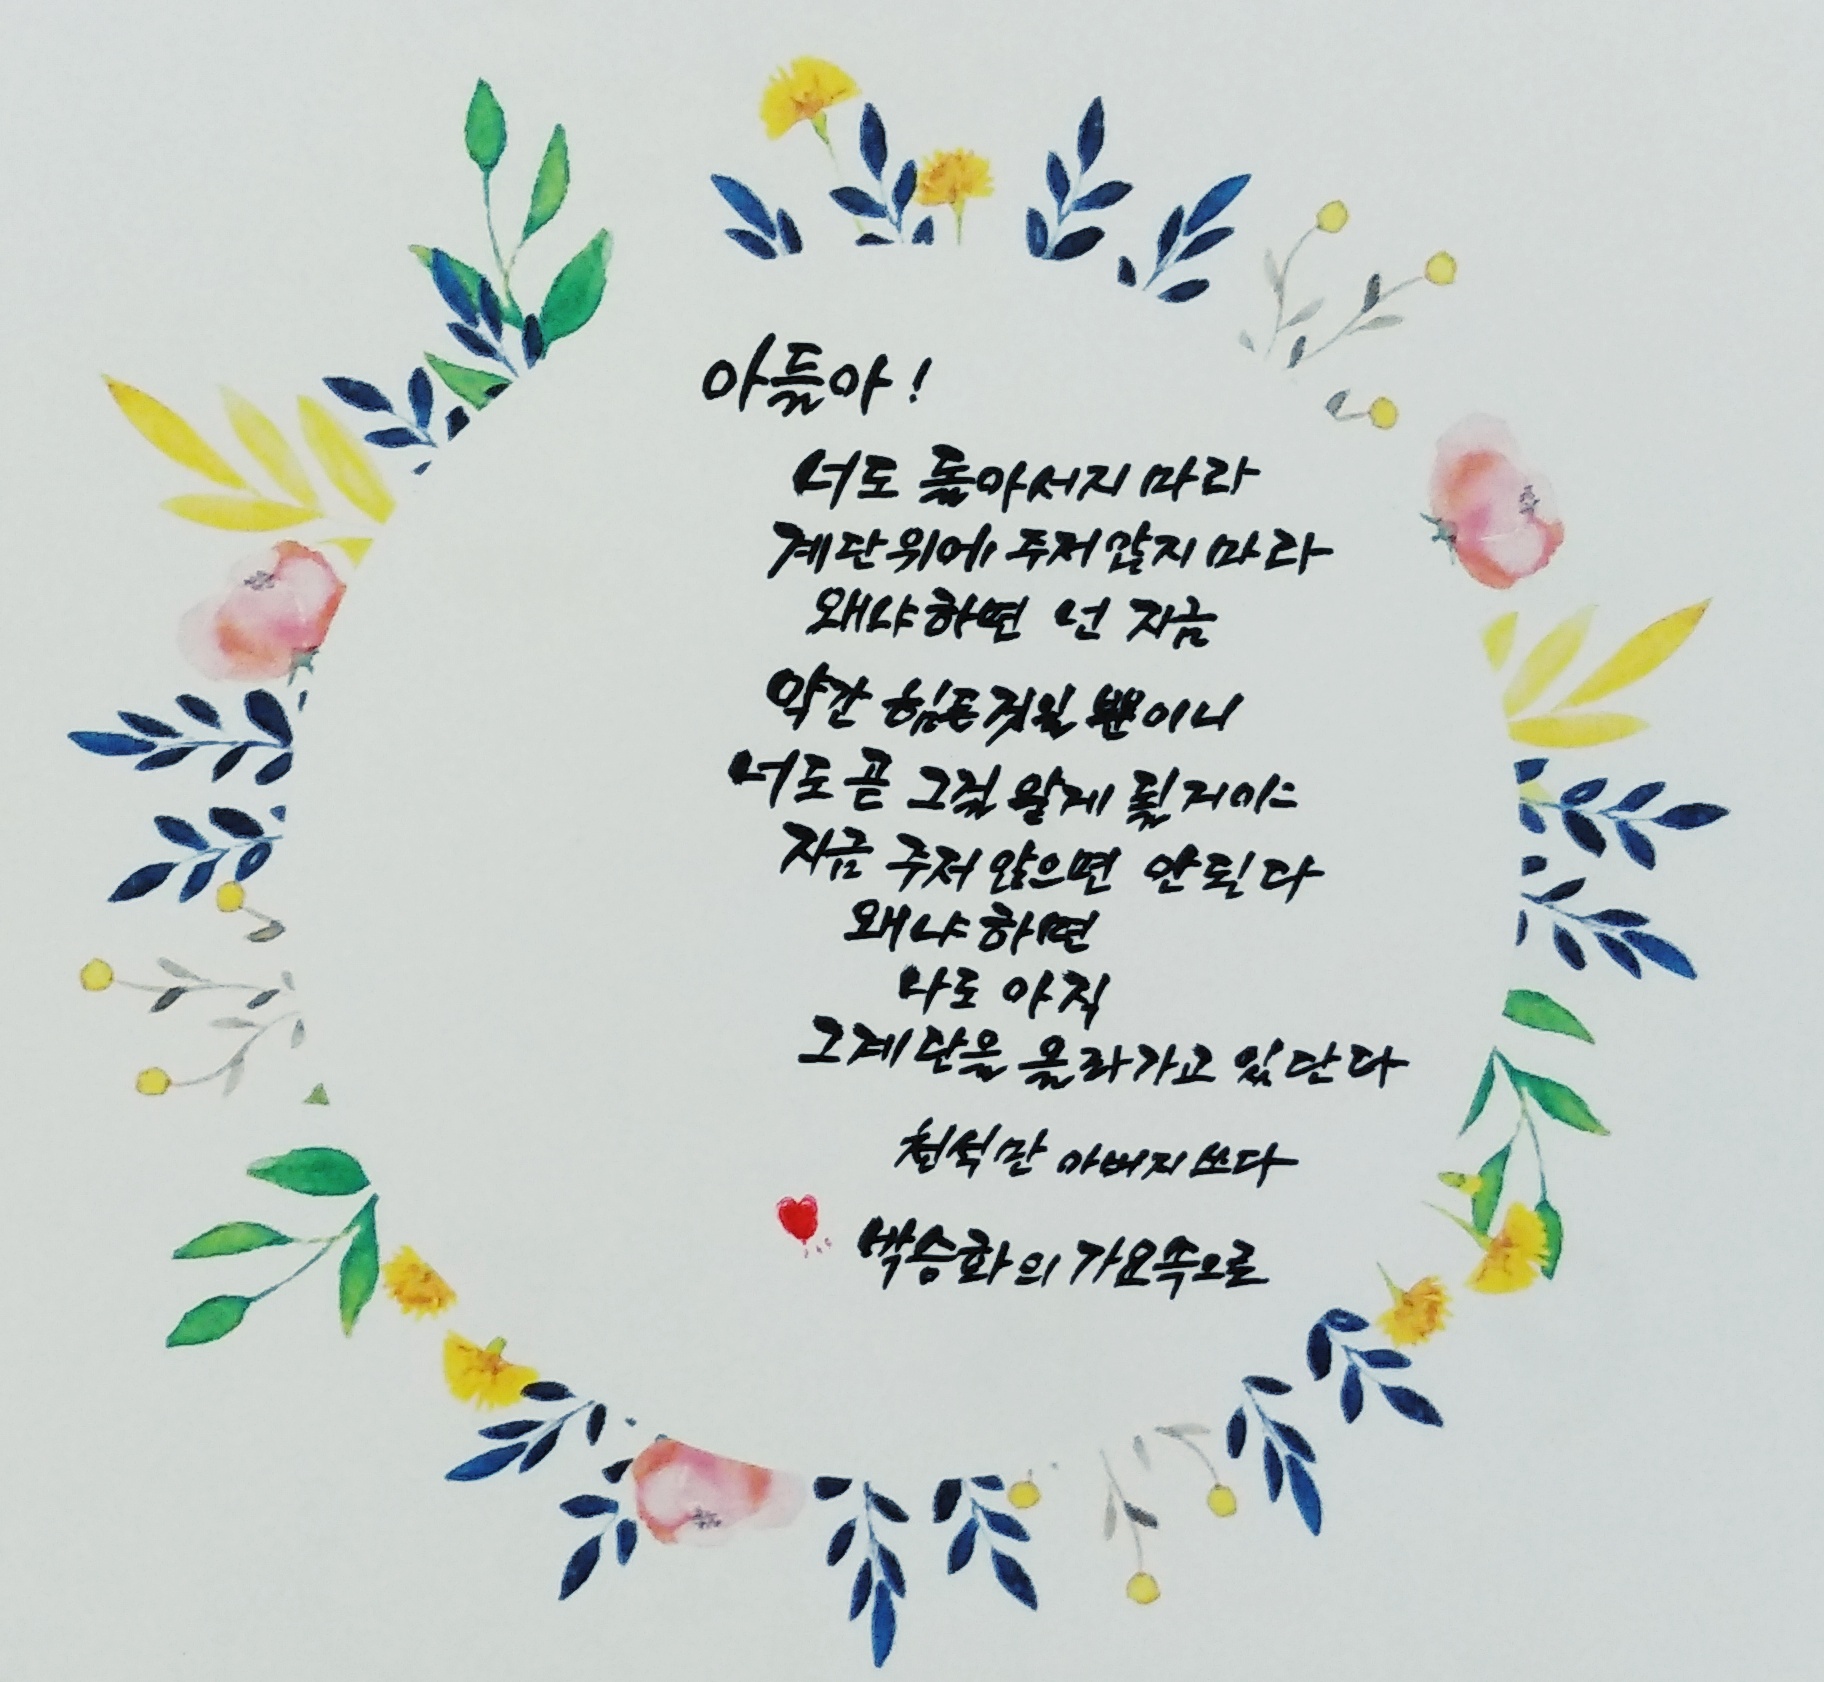 아들아!
너도 돌아서지 마라
계단위에 주저앉지 마라
왜냐하면 넌 지금
약간 힘든것일 뿐이니
너도 곧 그걸 알게 될
지금 주저 앉으면 안된다
왜냐하면
나도 아직
그계단을 올라가고 있단다
천석만 아버지 쓰다
박승화의 가요속으로